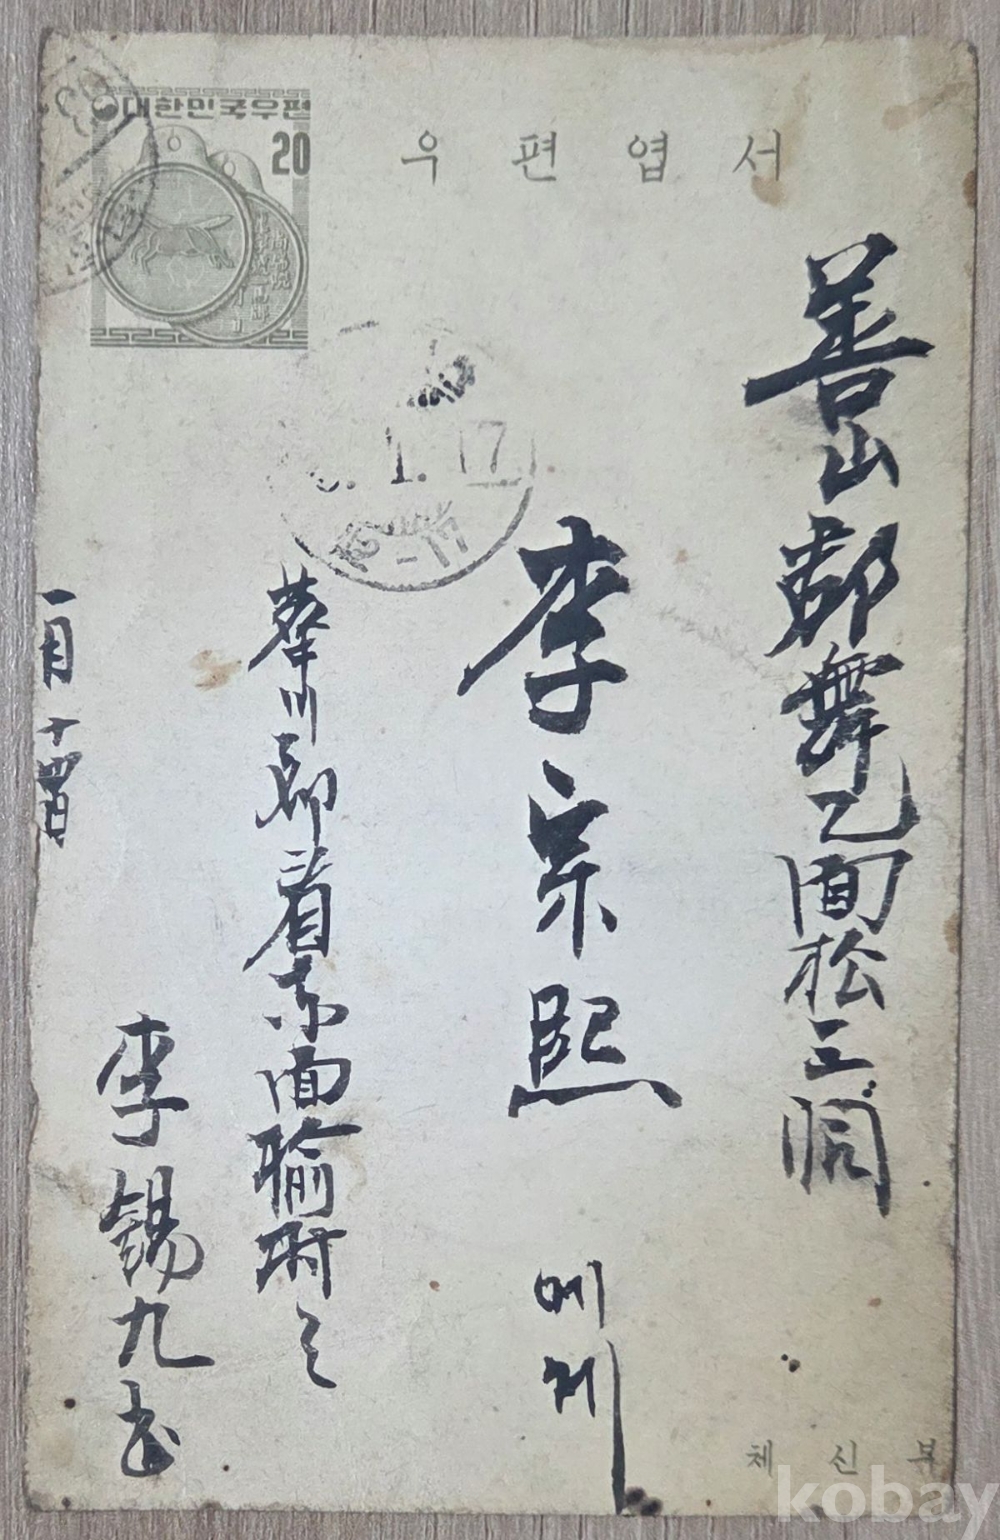 대한민국우편
20
우편엽서
善山郡舞乙面松三洞
李宗熙
에게
1. 17
華川郡看東面 之
李錫九
一月十四日
체신부
kobay